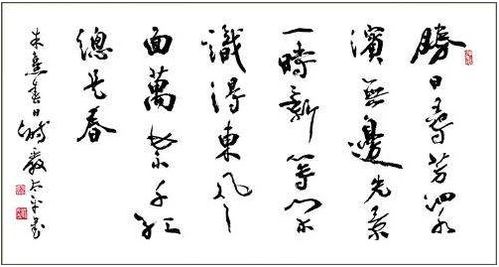 勝日尋芳泗水
濱無邊光景
一時新等閒
識得東風
面萬紫千紅
總是春
朱熹春日詩嚴太平書